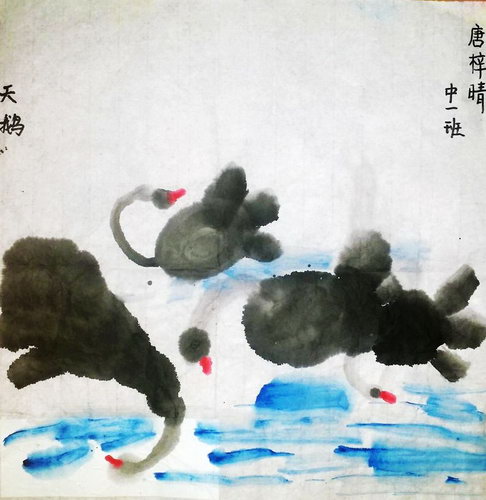 唐梓晴
中一班
天鹅